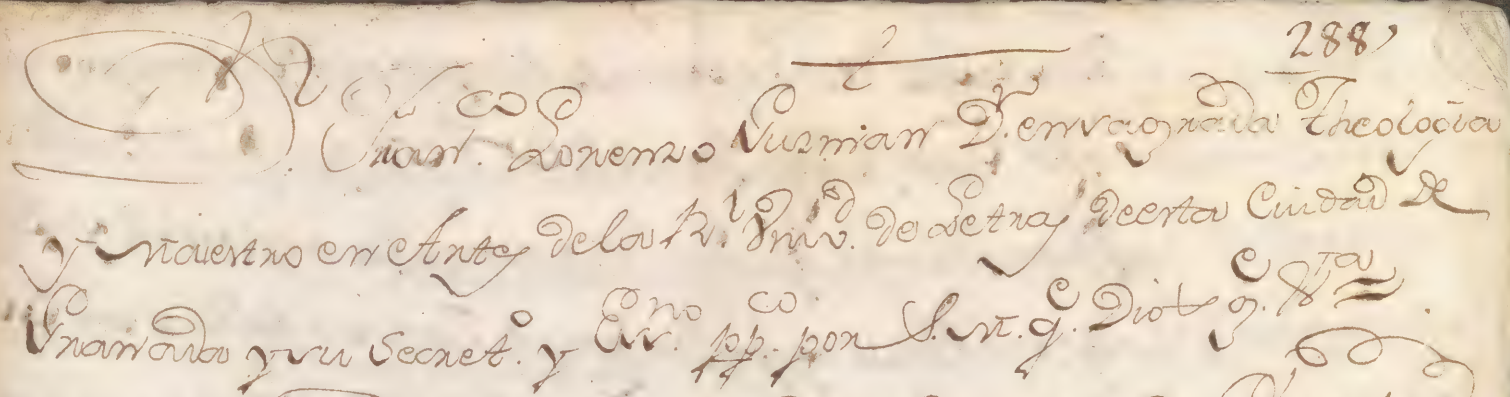 288
D.n Fran.co Lorenzo Guzman D.r en sagrada Theologia
y Maestro en Artes de la R.l Univ.d de Letras de esta Ciudad de
Granada y su Secret.o y Ess.no pp.co por S. M. q.e Dios g.e &.ta